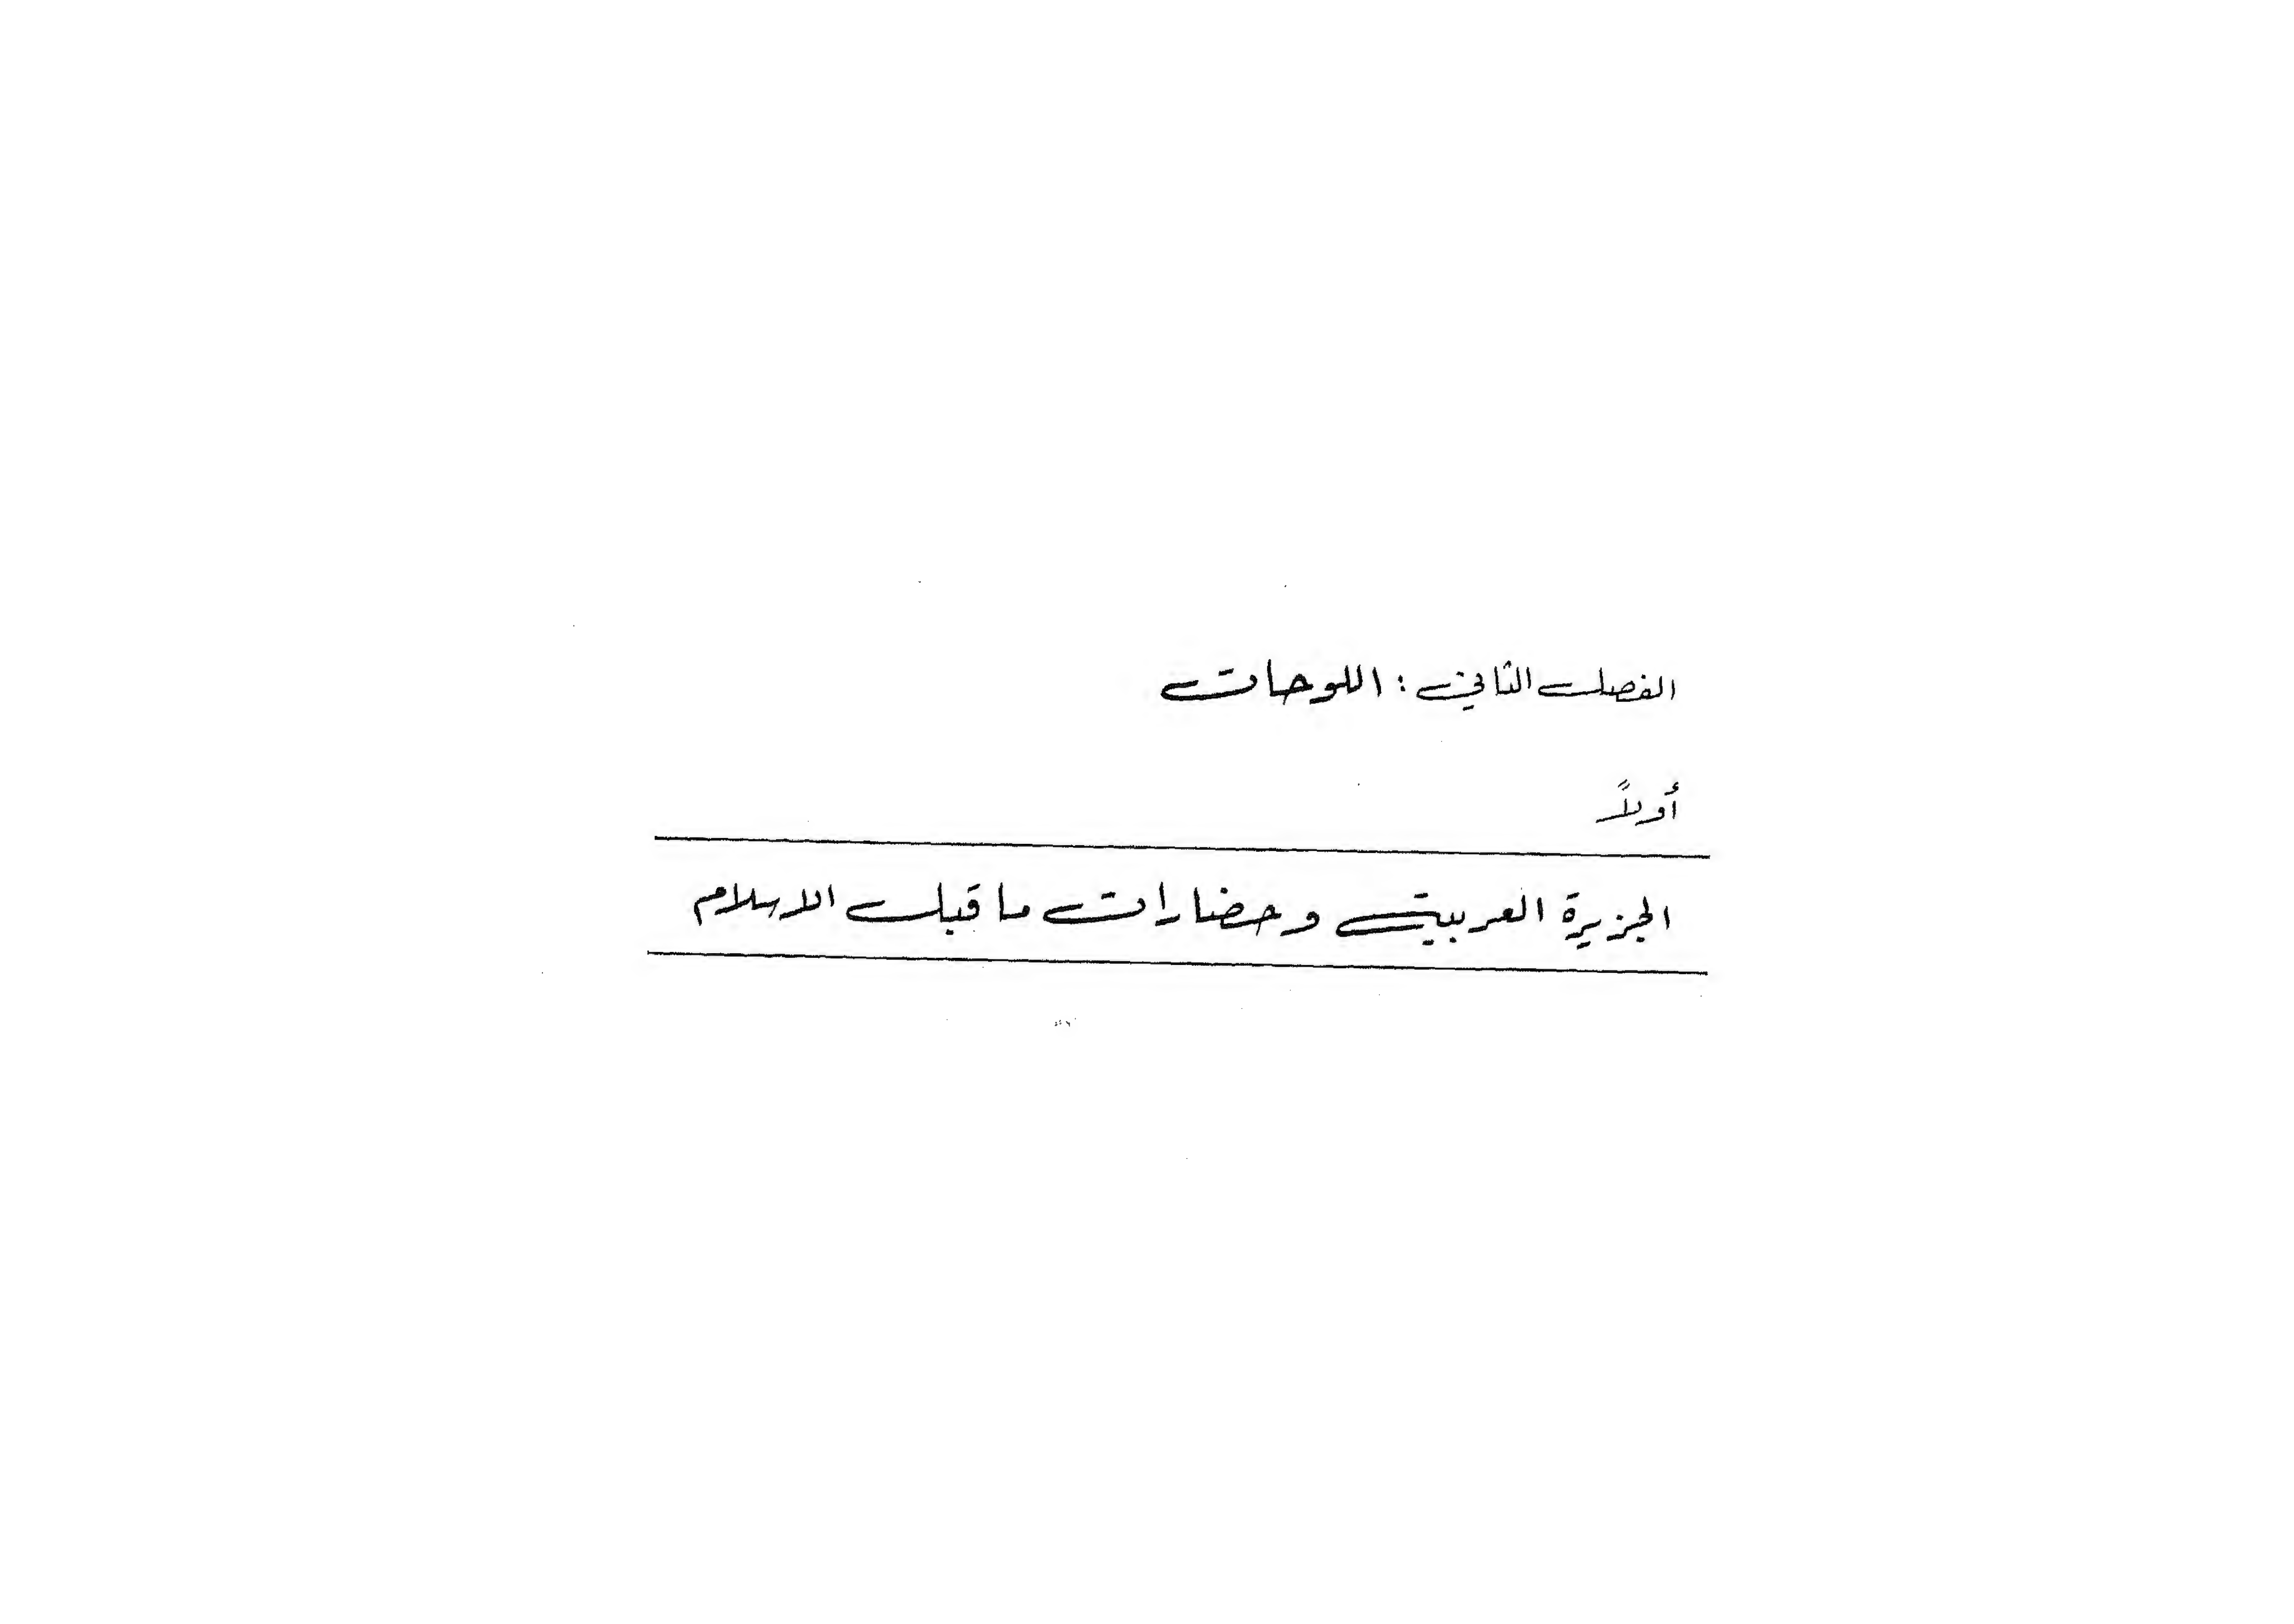 الفصل الثاني : اللوحات
أولاً
الجزيرة العربية وحضارات ما قبل الاسلام